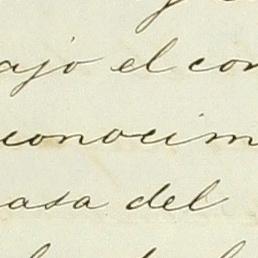 ajo el con
conocim
asa del